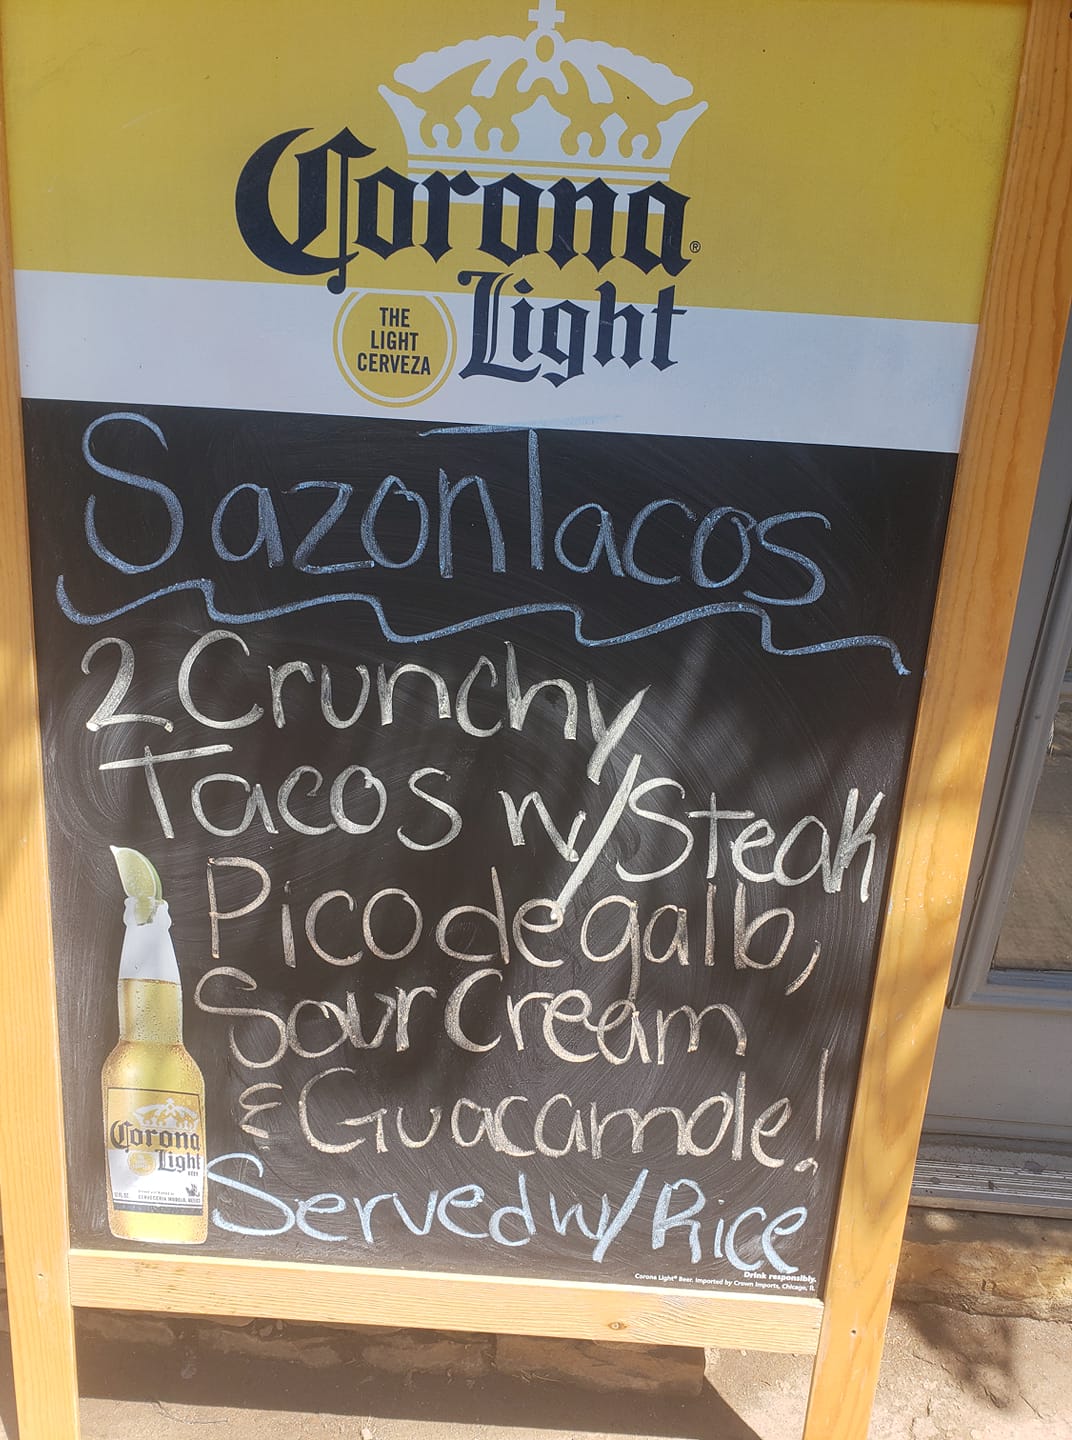 Corona®
Light
THE
LIGHT
CERVEZA
Sazon Tacos
2 Crunchy
Tacos w/ Steak
Pico de gallo,
Sour Cream
& Guacamole!
Served w/ Rice
Corona
Light
Drink responsibly.
Corona Light® Beer. Imported by Crown Imports, Chicago, IL